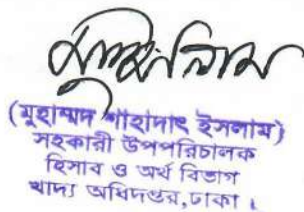 (মুহাম্মদ শাহাদাৎ ইসলাম)
সহকারী উপপরিচালক
হিসাব ও অর্থ বিভাগ
খাদ্য অধিদপ্তর, ঢাকা।